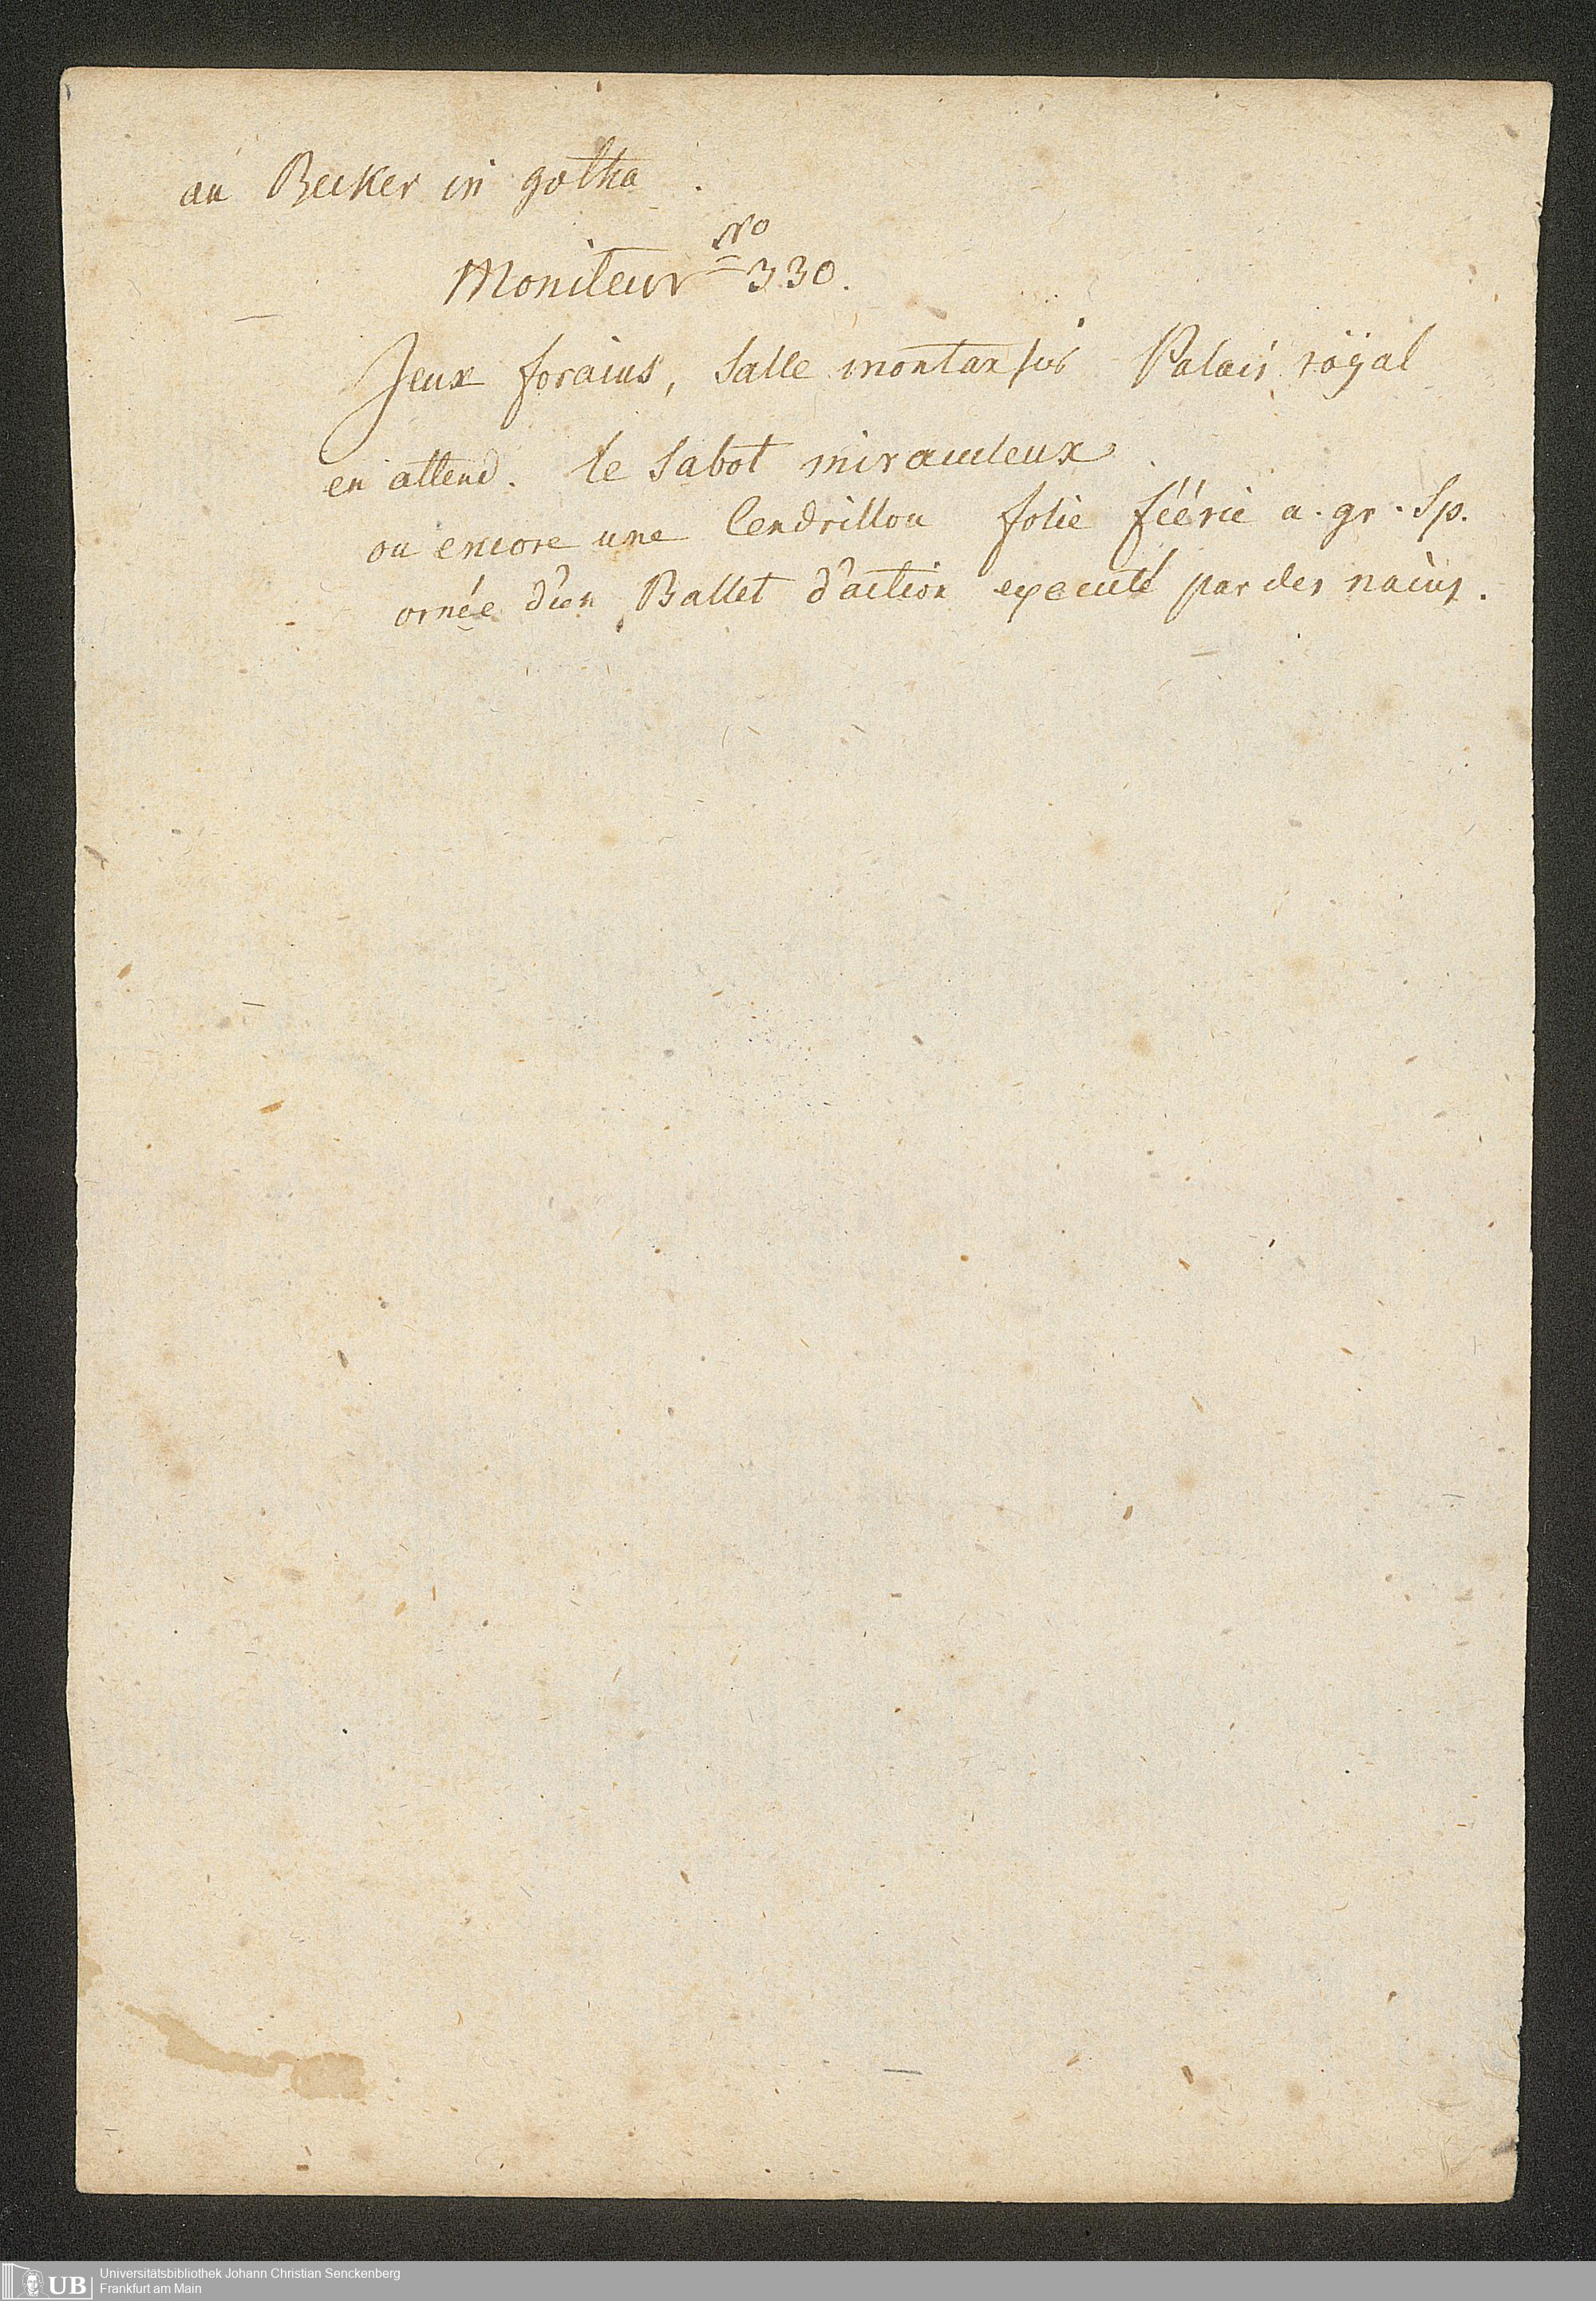 an Becker in gotha.
Moniteur No 330.
Jeux forains, Salle montansier Palais röyal
en attend. le Sabot miraculeux
ou encore une Cendrillon folie féérie a. gr. Sp.
ornée d'un Ballet d'action executé par des nains.
Universitätsbibliothek Johann Christian Senckenberg
Frankfurt am Main
UB